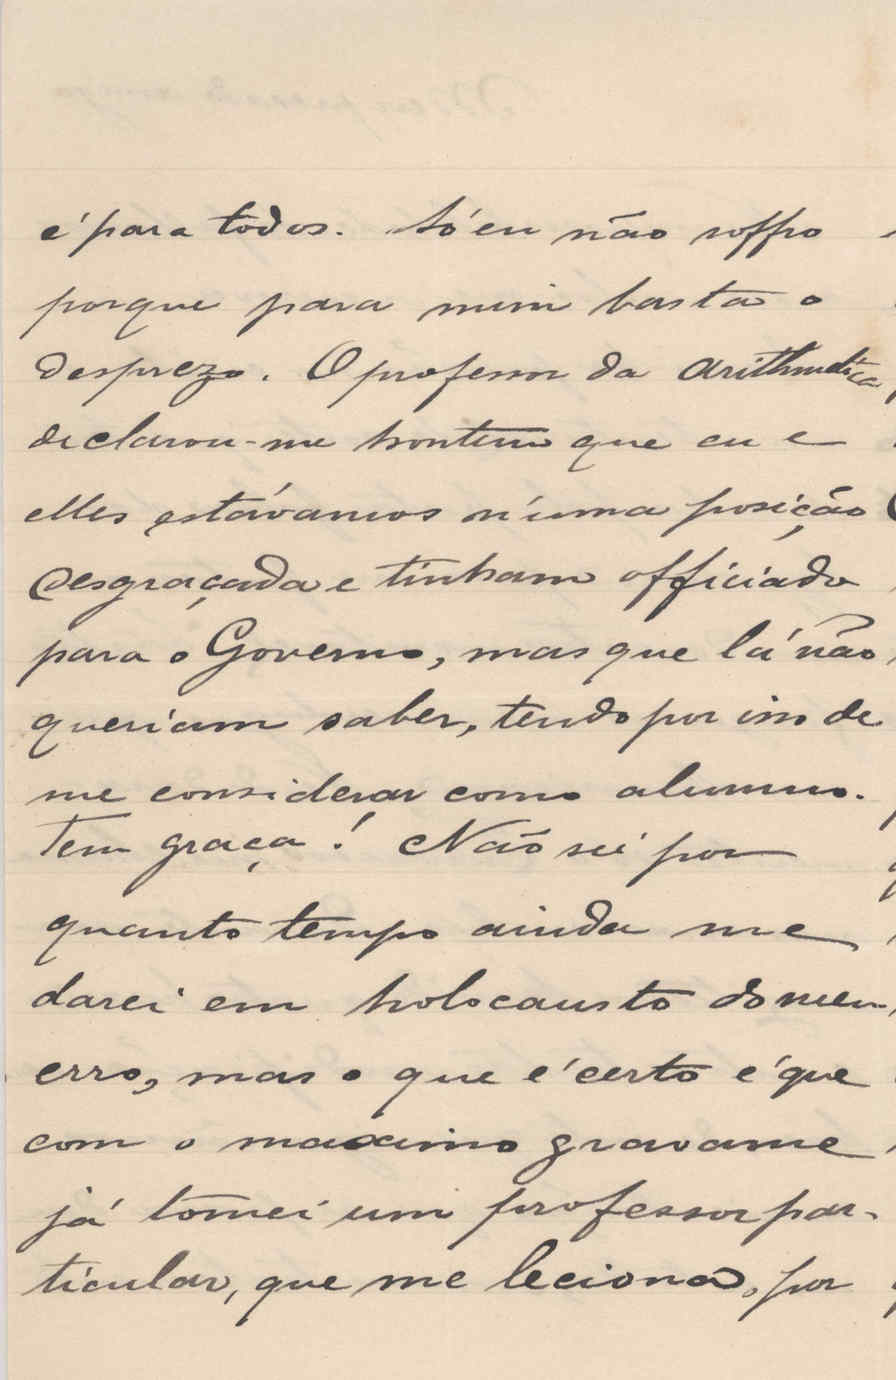 é para todos. Só eu não soffro
porque para mim basta o
desprezo. O professor da Arithmetica,
declarou-me hontem que eu e
elles estávamos n'uma posição
desgraçada e tinham officiado
para o Governo, mas que lá não
queriam saber, tendo por isso de
me considerar como alumno.
Tem graça! Não sei por
quanto tempo ainda me
darei em holocausto do meu
erro, mas o que é certo é que
com o maximo gravame
já tomei um professor par-
ticular, que me leciona, por